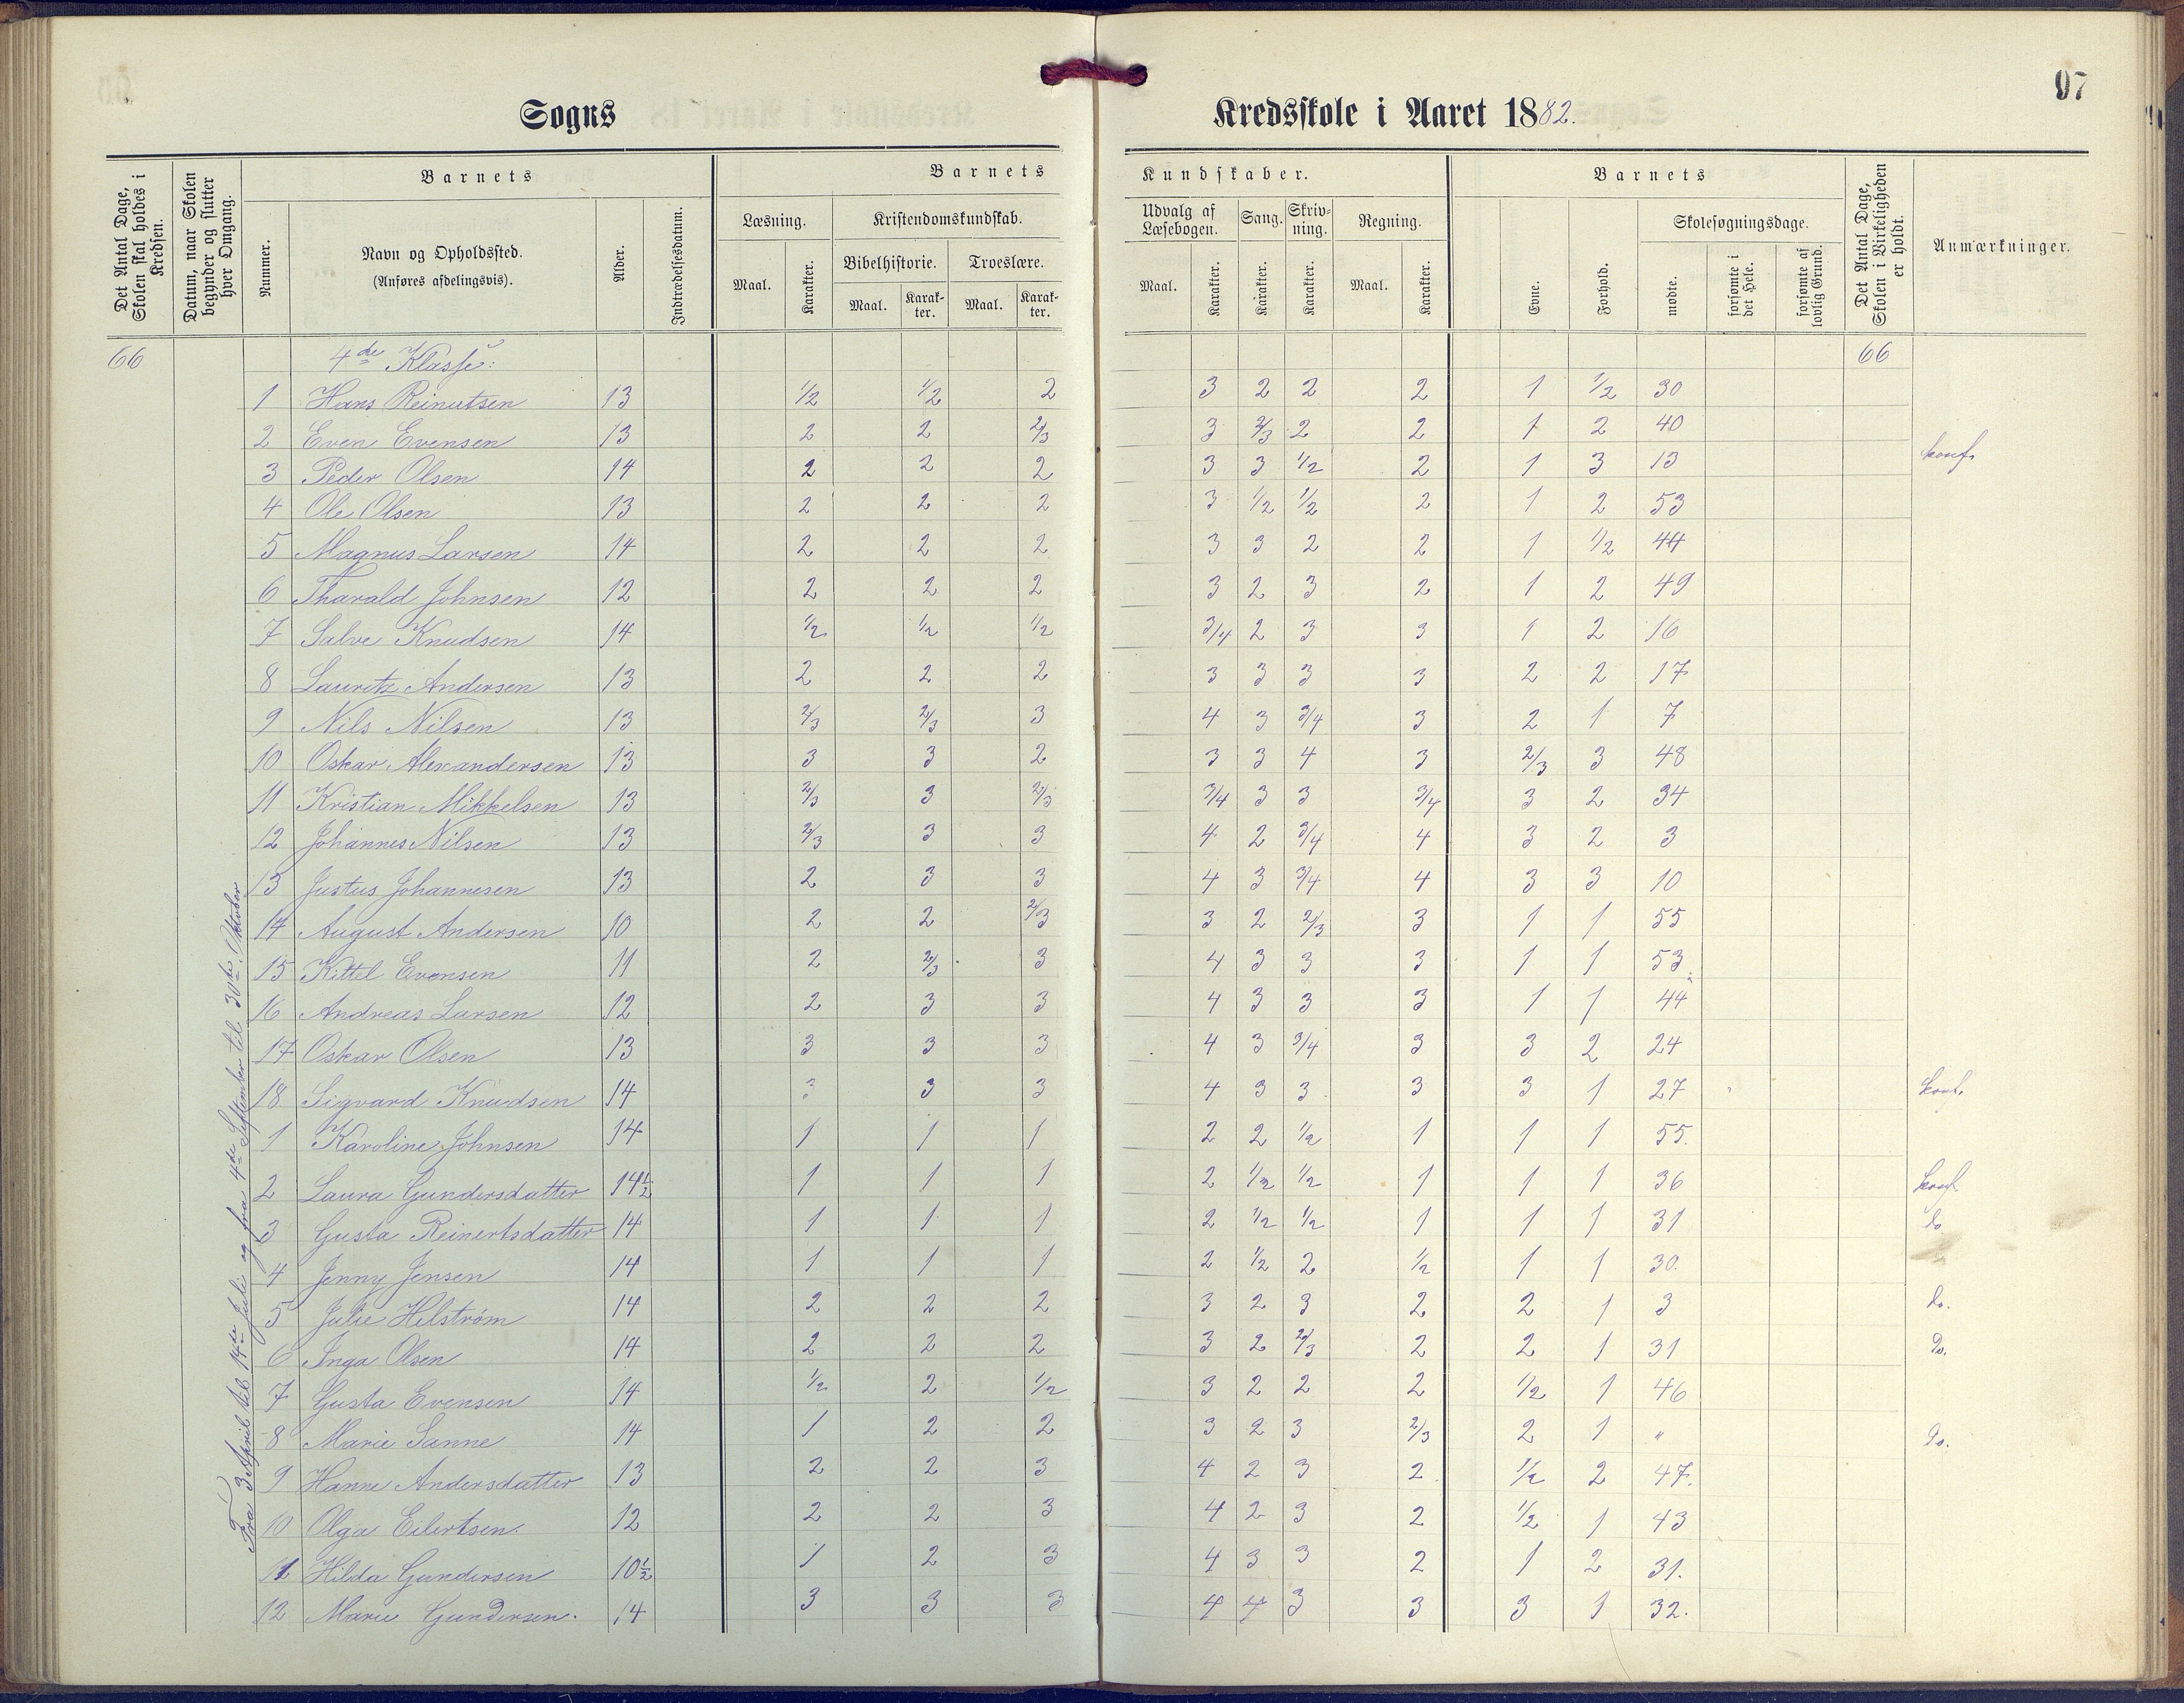 Sogns
Kredsskole i Aaret 1882.
97
Det Antal Dage, Skolen skal holdes i Kredsen.
Datum, naar Skolen begynder og slutter hver Omgang.
Barnets
Nummer.
Navn og Opholdssted.
(Anføres afdelingsvis).
Alder.
Indtrædelsesdatum.
Barnets
Kundskaber.
Læsning.
Maal.
Karakter.
Kristendomskundskab.
Bibelhistorie.
Maal.
Karakter.
Troeslære.
Maal.
Karakter.
Udvalg af Læsebogen.
Maal.
Karakter.
Sang.
Karakter.
Skrivning.
Karakter.
Regning.
Maal.
Karakter.
Barnets
Evne.
Forhold.
Skolesøgningsdage.
mødte.
forsømte i det Hele.
forsømte af lovlig Grund.
Det Antal Dage, Skolen i Virkeligheden er holdt.
Anmærkninger.
66 4de Klasse: 66
Fra 3 April til 14de Juli og fra 4de September til 30te Oktober
1 Hans Reinertsen 13 1/2 1/2 2 3 2 2 2 1 1/2 30
2 Even Evensen 13 2 2 2/3 3 2/3 2 2 1 2 40
3 Peder Olsen 14 2 2 2 3 3 1/2 2 1 3 13 konf.
4 Ole Olsen 13 2 2 2 3 1/2 1/2 2 1 2 53
5 Magnus Larsen 14 2 2 2 3 3 2 2 1 1/2 44
6 Tharald Johnsen 12 2 2 2 3 2 3 2 1 2 49
7 Salve Knudsen 14 1/2 1/2 1/2 3/4 2 3 3 1 2 16
8 Lauritz Andersen 13 2 2 2 3 3 3 3 2 2 17
9 Nils Nilsen 13 2/3 2/3 3 4 3 3/4 3 2 1 7
10 Oskar Alexandersen 13 3 3 2 3 3 4 3 2/3 3 48
11 Kristian Mikkelsen 13 2/3 3 2/3 3/4 3 3 3/4 3 2 34
12 Johannes Nilsen 13 2/3 3 3 4 2 3/4 4 3 2 3
13 Justus Johannesen 13 2 3 3 4 3 3/4 4 3 3 10
14 August Andersen 10 2 2 2/3 3 2 2/3 3 1 1 55
15 Kittel Evensen 11 2 2/3 3 4 3 3 3 1 1 53
16 Andreas Larsen 12 2 3 3 4 3 3 3 1 1 44
17 Oskar Olsen 13 3 3 3 4 3 3/4 3 3 2 24
18 Sigvard Knudsen 14 3 3 3 4 3 3 3 3 1 27 konf.
1 Karoline Johnsen 14 1 1 1 2 2 1/2 1 1 1 55.
2 Laura Gundersdatter 14½ 1 1 1 2 1/2 1/2 1 1 1 36 konf.
3 Gusta Reinertsdatter 14 1 1 1 2 1/2 1/2 1 1 1 31 do
4 Jenny Jensen 14 1 1 1 2 1/2 2 1/2 1 1 30.
5 Julie Hilstrøm 14 2 2 2 3 2 3 2 2 1 3 do.
6 Inga Olsen 14 2 2 2 3 2 2/3 2 2 1 31 Do.
7 Gusta Evensen 14 1/2 2 1/2 3 2 2 2 1/2 1 46
8 Marie Sanne 14 1 2 2 3 2 3 2/3 2 1 " Do.
9 Hanne Andersdatter 13 2 2 3 4 2 3 2 1/2 2 47.
10 Olga Eilertsen. 12 2 2 3 4 2 3 2 1/2 1 43
11 Hilda Gundersen 10½ 1 2 3 4 3 3 2 1 2 31.
12 Marie Gundersen. 14 3 3 3 4 4 3 3 3 1 32.